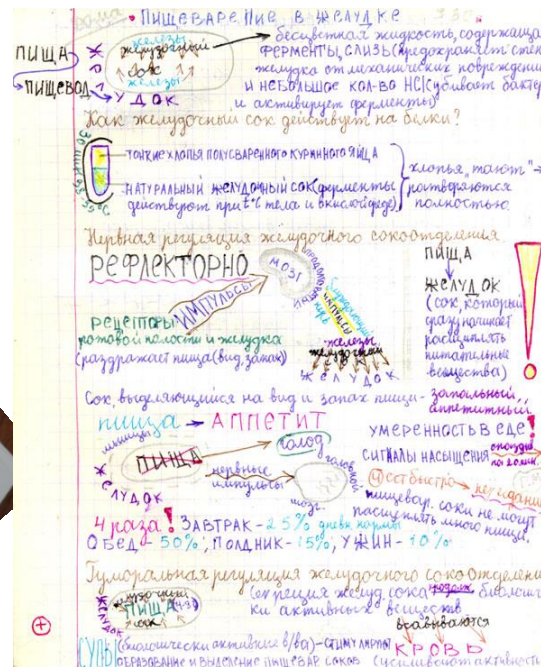 • ПИЩЕВАРЕНИЕ В ЖЕЛУДКЕ
железы
желудочный
сок
железы
бесцветная жидкость, содержаща
ПИЩА
ФЕРМЕНТЫ, СЛИЗЬ (предохраняет стен
желудка от механических повреждени
ПИЩЕВОД
ЖЕЛУДОК
И НЕБОЛЬШОЕ КОЛ-ВО HCl (убивает бактер
и активирует ферменты)
Как желудочный сок действует на белки?
30 МИН
ТОНКИЕ ХЛОПЬЯ ПОЛУСВАРЕННОГО КУРИННОГО ЯЙЦА
НАТУРАЛЬНЫЙ ЖЕЛУДОЧНЫЙ СОК (ферменты
действуют при t°C тела и в кислой среде)
хлопья "тают" →
растворяются
полностью
Нервная регуляция желудочного сокоотделения
РЕФЛЕКТОРНО
МОЗГ
ИМПУЛЬСЫ
ИМПУЛЬСЫ
РЕЦЕПТОРЫ
ротовой полости и желудка
(раздражает пища (вид, запах))
железы
желудочный
ЖЕЛУДОК
ПИЩА
ЖЕЛУДОК
(сок, который
сразу начинает
расщеплять
питательные
вещества)
Сок, выделяющийся на вид и запах пищи - запальный,
аппетитный
пища → АППЕТИТ
УМЕРЕННОСТЬ В ЕДЕ!
ПИЩА
ЖЕЛУДОК
голод
нервные
импульсы
головной
мозг
СИГНАЛЫ НАСЫЩЕНИЯ
на 20 мин.
ест быстро → переедание
пищевар. соки не могут
расщеплять много пищи.
4 раза! ЗАВТРАК - 25% дневн нормы
ОБЕД - 50%, ПОЛДНИК - 15%, УЖИН - 10%
Гуморальная регуляция желудочного сокоотделени
желудочный
ПИЩА
сок
ЖЕЛУДОК
секреция желуд. сока
ки активных веществ
всасываются
СУПЫ (биологически активные в/ва) - СТИМУЛИРУЮТ
КРОВЬ
ОБРАЗОВАНИЕ И ВЫДЕЛЕНИЕ ПИЩЕВАР СОКОВ
(усиливают активность